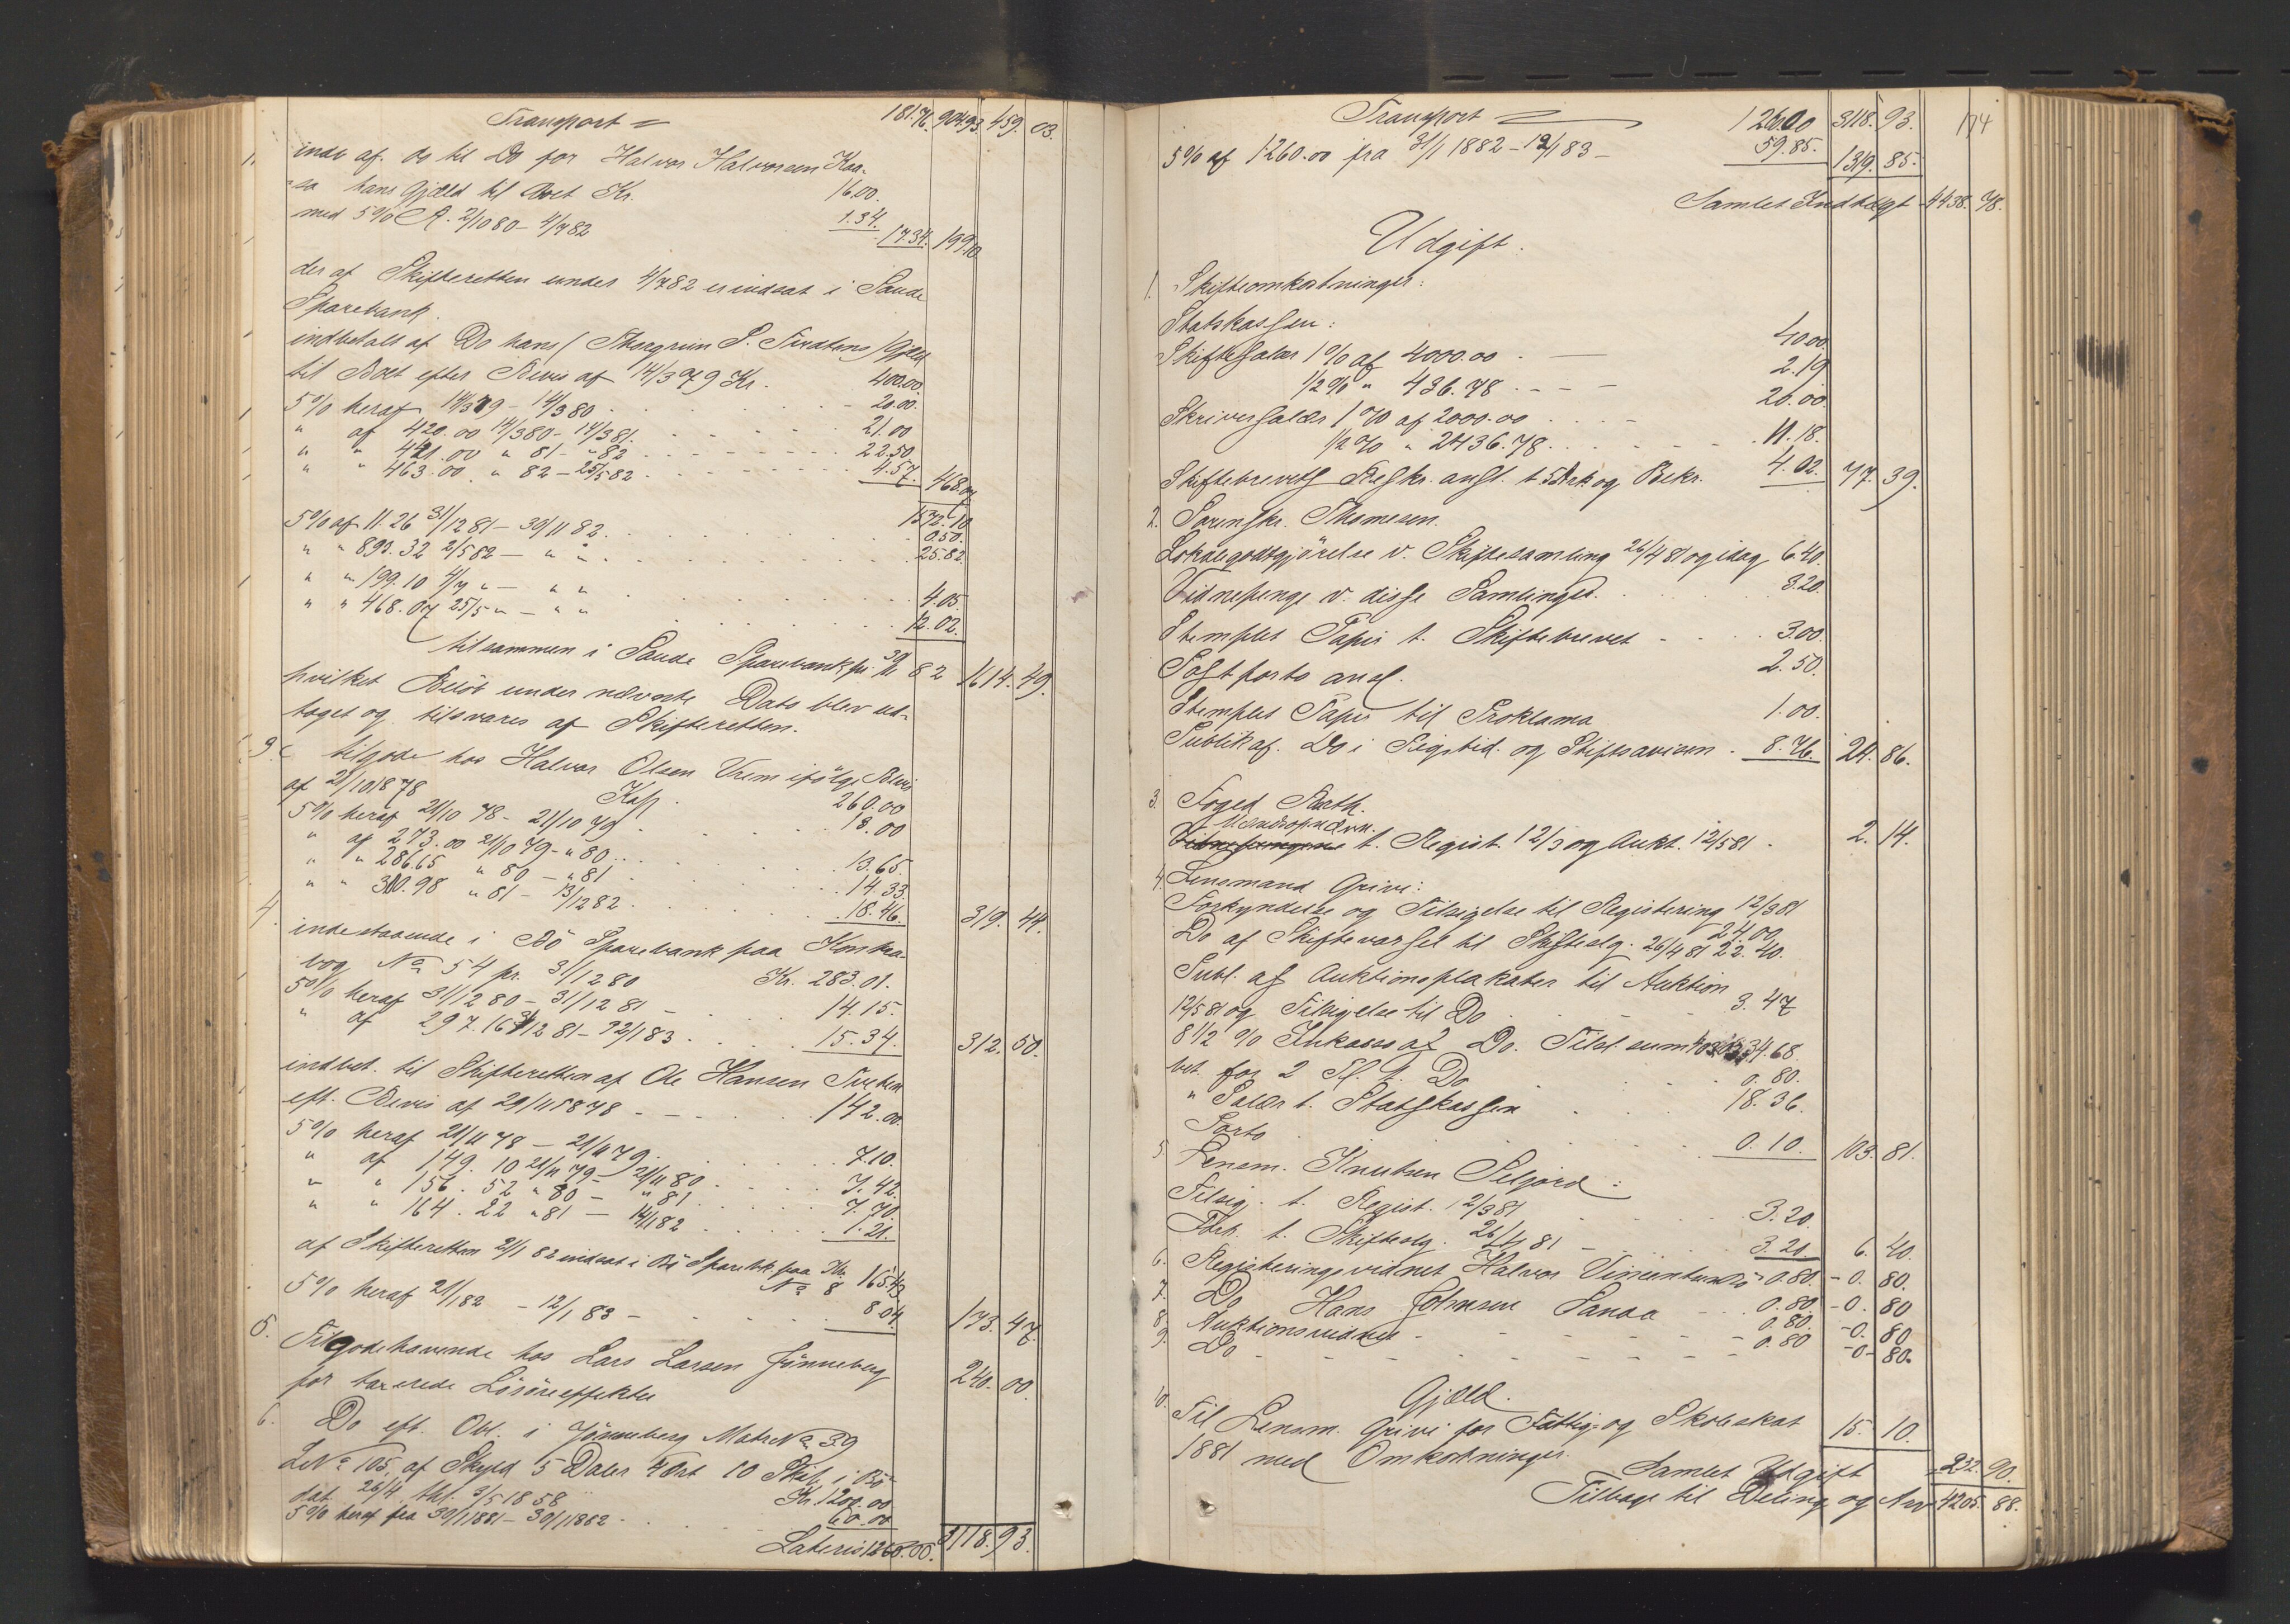 Transport = 181.76. 904.93. 459. 03.
indb. af. do til Do for Halvor Halvorsen Kaa-
sa hans Gjæld til Boet Kr. 16.00.
med 5% A. 2/10 80 - 4/7 82 1.34. 17.34. 199.10
der af Skifteretten under 4/7 82 er indsat i Saude
Sparebank.
indbetalt af Do hans (Thorgrim S. ) Gjæld
til Boet efter Bevis af 14/3 79 Kr. 400.00
5% heraf 14/3 79 - 14/3 80 20.00.
" af 420.00 14/3 80 - 14/3 81. 21.00
" " 441.00 " 81 - " 82 22.50.
" " 463.00. " 82 - 25/5 82 4.57. 468.07
1572.10
5% af 11.26 31/12 81 - 30/11 82. 0.50.
" " 893.32 2/5 82 - " " 25.82.
" " 199.10 4/7 " - " " 4.05.
" " 468.07 25/5 " - " " 12.02.
tilsammen i Saude Sparebank pr. 30/11 82 1614. 49.
hvilket Beløb under nævnte Dato blev ud-
taget og tilsvares af Skifteretten.
3. tilgode hos Halvor Olsen Vrem ifølge Bevis
af 21/10 1878 Kap. 260.00
5% heraf 21/10 78 - 21/10 79 13.00
" af 273.00 21/10 79 - " 80 13.65.
" " 286.65 " 80 - " 81 14.33.
" " 300.98 " 81 - 13/12 82 18.46. 319. 44.
4. indestaaende i Bø Sparebank paa Kontra-
bog No 54 pr. 31/12 80 Kr. 283.01.
5% heraf 31/12 80 - 31/12 81 14.15.
" af 297.16 31/12 81 - 12/1 83 15.34. 312. 50.
indbet. til Skifteretten af Ole Hansen
eft. Bevis af 21/11 1878 142.00.
5% heraf 21/11 78 - 21/11 79. 7.10.
" af 149.10 21/11 79 - 21/11 80 7.42.
" " 156.52 " 80 - " 81 7.70.
" " 164.22 " 81 - 14/1 82 1.21.
af Skifteretten 21/1 82 indsat i Bø Sparebk. paa Ktr.
No 8 165.43
5% heraf 21/1 82 - 12/1 83 - 8.04. 173. 47.
5. Tilgodehavende hos Lars Larsen Jønneberg
for taxerede Løsøreeffekter 240. 00.
6. Do eft. Obl. i Jønneberg Matr No 39
L No 105, af Skyld 5 Daler 4 Ort 10 Skill. i Bø
dat. 26/4 thl. 3/5 1858 Kr. 1200.00
5% heraf fra 30/1 1881 - 30/1 1882 60.00
Lateris 1260.00. 3118. 93.
Transport = 1260.00 3118. 93. 174
5% af 1260.00 fra 31/1 1882 - 12/1 83 - 59.85. 1319. 85.
Samlet Indtægt 4438. 78.
Udgift.
1. Skifteomkostninger:
Statskassen:
Skiftesalær 1% af 4000.00 - 40.00
1/2% " 436.78 2.19
Skriversalær 1% af 2000.00 20.00
1/2% " 2436.78 11.18.
Skiftebrevets Beskr. ansl. t. 5 Ark og Bekr. 4.02. 77. 39.
2. Sorenskr. Thomesen.
Lokalegodtgjørelse v. Skiftesamling 26/4 81 og idag 6.40.
Vidnepenge v. disse Samlinger. 3.20.
Stemplet Papir t. Skiftebrevet 3.00.
Postporto ansl. 2.50.
Stemplet Papir til Proklama 1.00.
Publik. af. Do i Rigstid. og Stiftsavisen 8.76. 24. 86.
3. Foged Barth.
Mandsopnævn.
Vidnepengene t. Regist. 12/3 og Aukt. 12/5 81 2. 14.
4. Lensmand Grivi:
Forkyndelse og Tilsigelse til Registering 12/3 81 24.00.
Do af Skiftevarsel til Skiftesg. 26/4 81 22.40.
Publ. af Auktionsplakater til Auktion
12/5 81 og Tilsigelse til Do 3.47
8 1/2 % Inkasso af Do. Tilsl. sum 34.68.
bet. for 2 Do 0.80.
" Salær t. Statskassen 18.36.
Porto 0.10. 103. 81.
5. Lensm. Knutsen Seljord:
Tilsig. t. Regist. 12/3 81 3.20.
Fork. t. Skiftesg. 26/4 81 3.20. 6. 40.
6. Registeringsvidnet Halvor 0.80. - 0. 80.
7. Do Hans Johnsen Sanaa 0.80. - 0. 80
8. Auktionsvidnet 0.80. - 0. 80
9. Do 0.80 - 0. 80.
Gjæld.
10. Til Lensm. Grivi for Fattig- og Skoleskat
1881 med Omkostninger. 15. 10.
Samlet Udgift 232. 90.
Tilbage til Deling og Arv 4205. 88.